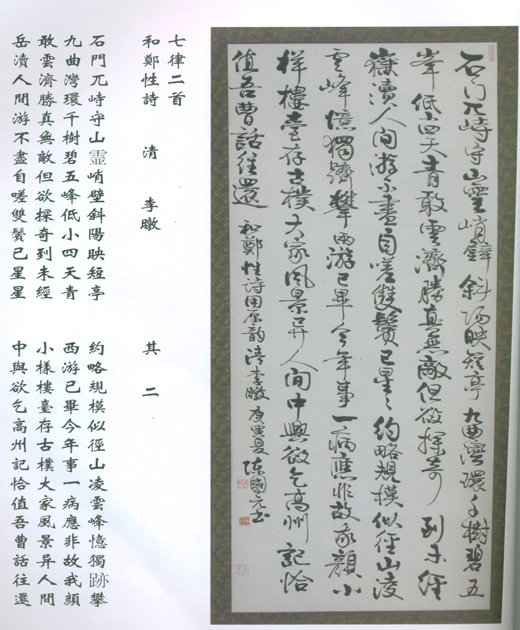 石门兀峙守山靈峭壁斜阳映短亭九曲灣環千樹碧五
峯低小四天青敢雲濟勝真無敵但欲探奇到未經
嶽瀆人间游不盡自嗟雙鬢已星々約略規模似徑山凌
雲峰憶獨躋攀西游已畢今年事一病應非故我顏小
樣樓臺存古樸大家風景异人间中與欲乞高州記恰
值吾曹話往還
和鄭性詩用原韵清李暾庚寅夏陈國元书
七律二首
和鄭性詩 清 李暾
石門兀峙守山靈峭壁斜陽映短亭
九曲灣環千樹碧五峰低小四天青
敢雲濟勝真無敵但欲探奇到未經
岳瀆人間游不盡自嗟雙鬢已星星
其二
約略規模似徑山凌雲峰憶獨跡攀
西游已畢今年事一病應非故我顏
小樣樓臺存古樸大家風景异人間
中與欲乞高州記恰值吾曹話往還